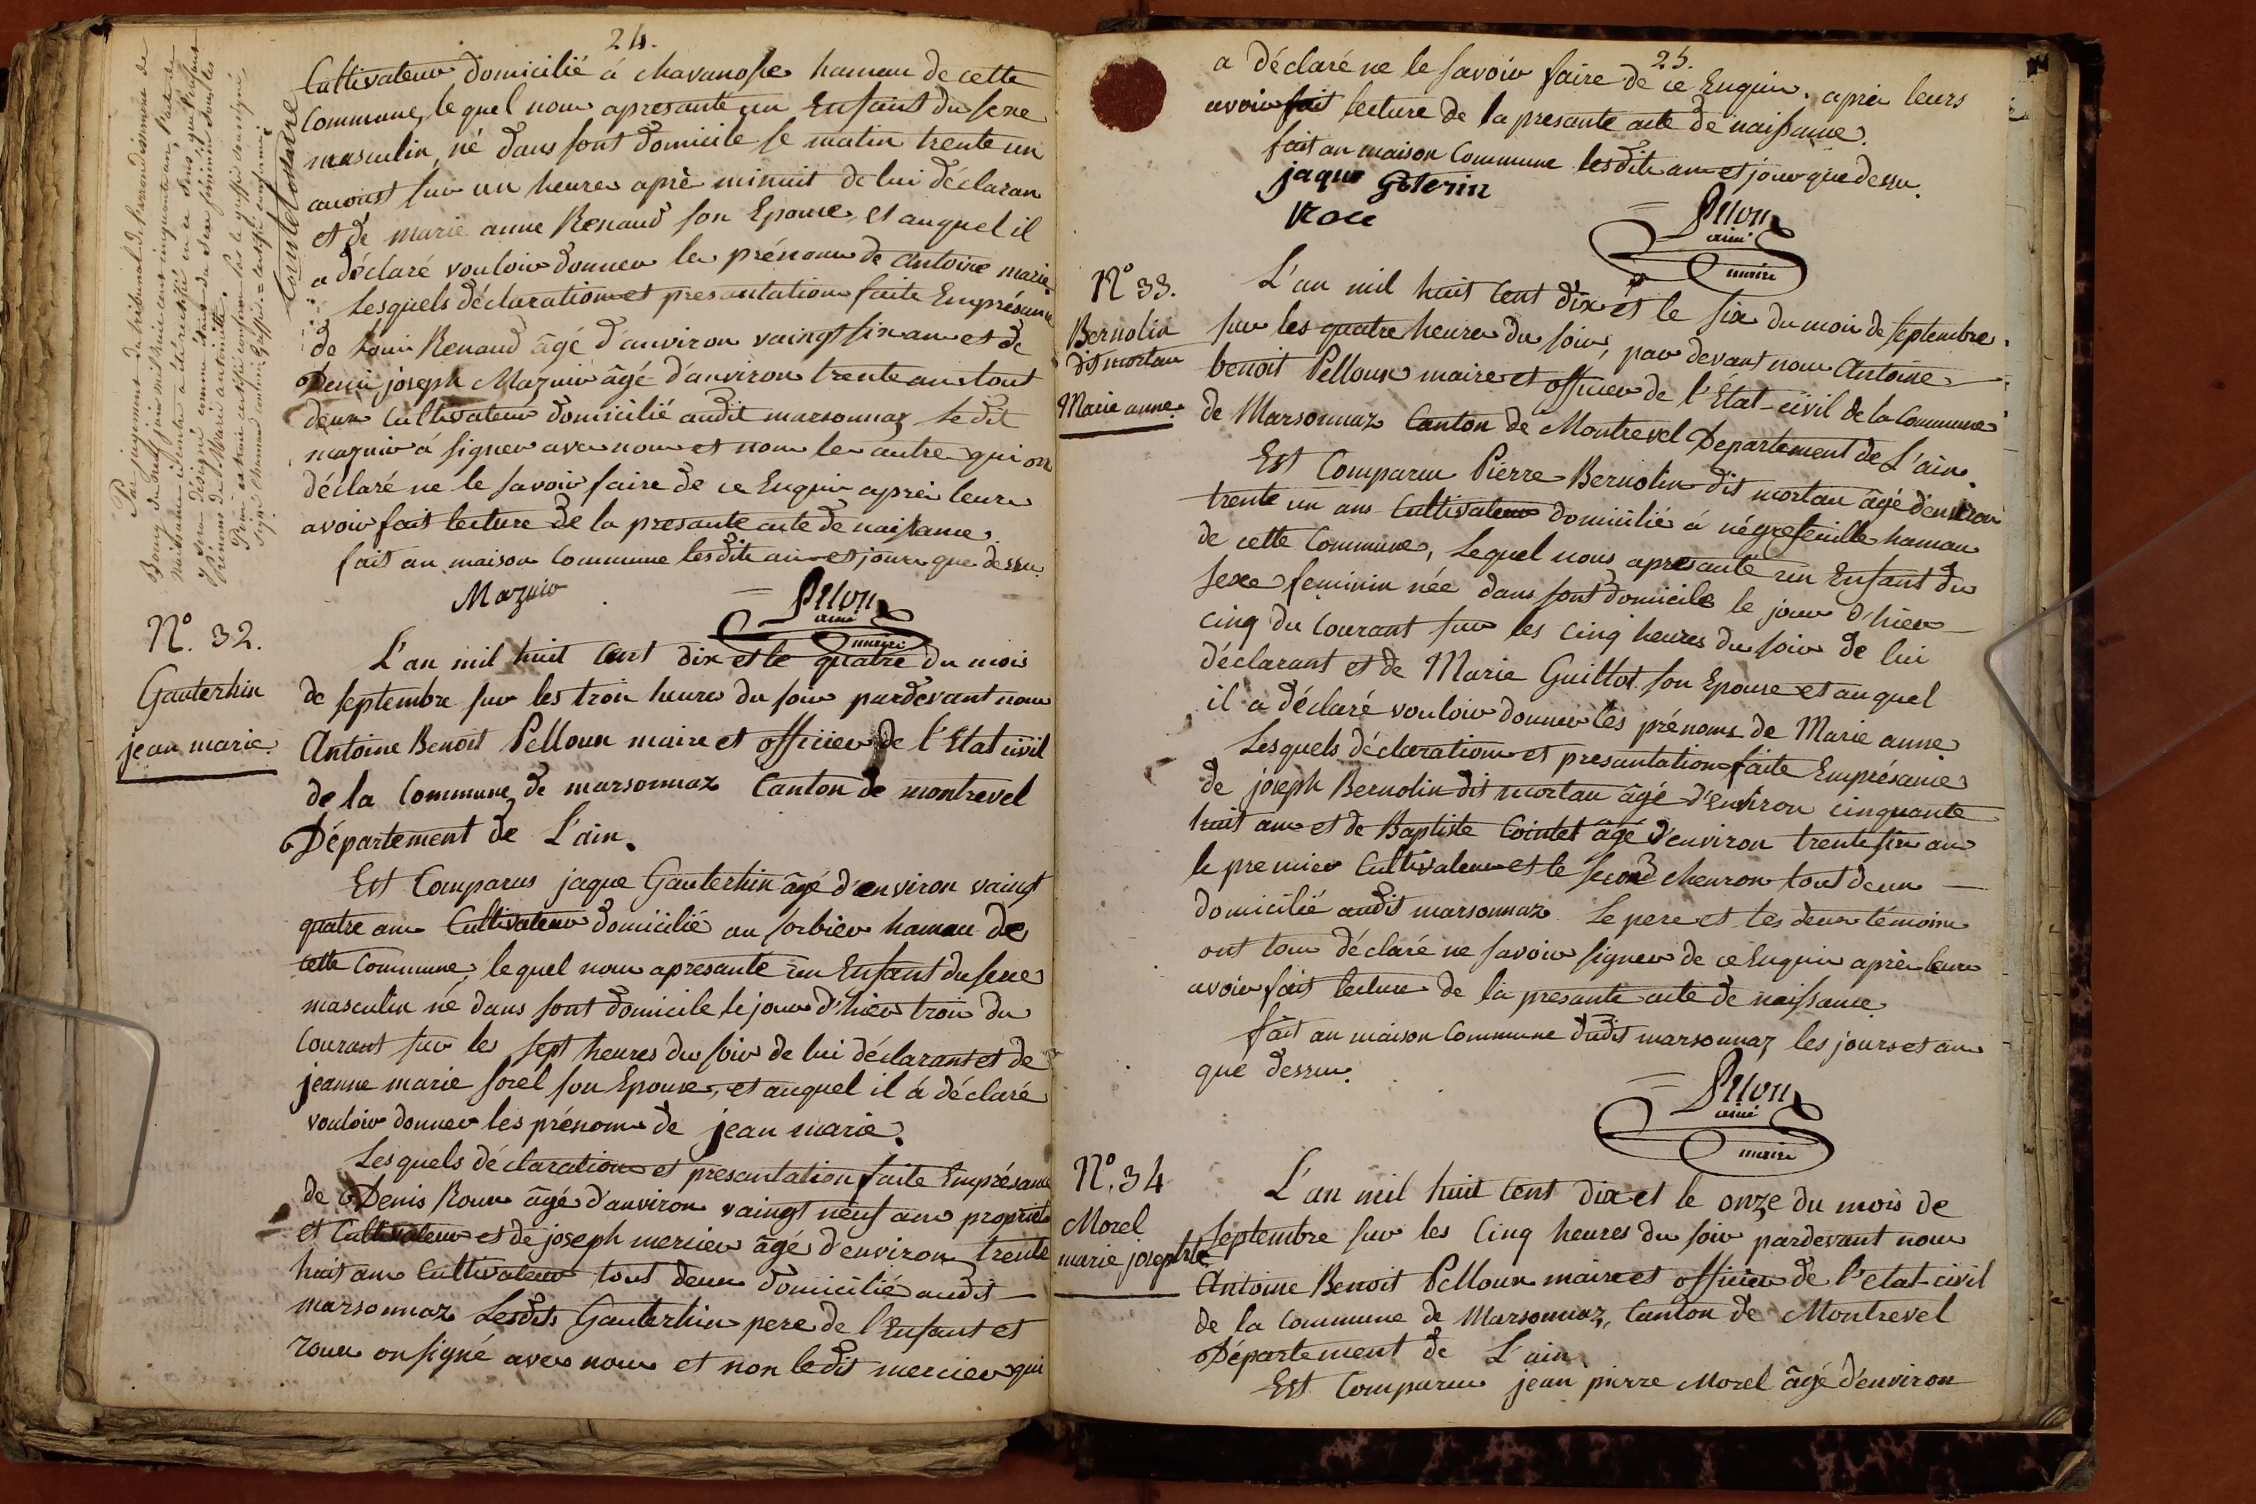 24.
Cultivateur domicilié á chavanosse hameau de cette
Commune, lequel nous apresanté un Enfant du sexe
masculin, né dans sont domicile se matin trente un
auoust sur un heures aprè minuit de lui déclaran
et de marie anne Renaud son Epouse, et auquel il
a déclaré vouloir donner les prénoms de Antoine marie.
Lesquels déclaration et presantation faite Emprésance
de Louis Renaud âgé d'anviron vaingt six ans et de
Denis joseph Mazuir âgé d'anviron trente ans tout
deux Cultivateur domicilié audit marsonnaz le dit
mazuir á signer avec nous et non les autre qui on
déclaré ne le savoir faire de ce Enquis après leurs
avoir fait lecture de la presante acte de naissance.
fait an maison Commune lesdits an et jours que dessu.
Mazuir
Pelloux
ainé
maire
Par jugement du tribunal de l'arrondissement de
Bourg du neuf juin mil huit cent cinquante un, l'acte de
naissance ci contre a été rectifié en ce sens, que l'enfant
y sera désigné comme étant du sexe féminin sous les
prénoms de Marie antoinette.
Pour extrait certifié conforme par le greffier soussigné
signé
N.° 32.
Gauterhin
jean marie.
L'an mil huit cent dix et le quatre du mois
de septembre sur les trois heures du soir pardevant nous
Antoine Benoit Pelloux maire et officier de l'Etat civil
de la Commune de marsonnaz Canton de montrevel
Département de L'ain.
Est Comparus jaque Gauterhin âgé d'environ vaingt
quatre ans Cultivateur domicilié au sorbier hameau de
cette Commune, lequel nous apresanté un Enfant du sexe
masculin né dans sont domicile le jour d'hier trois du
Courant sur les sept heures du soir de lui déclarant et de
jeanne marie sorel son Epouse, et auquel il á déclaré
vouloir donner les prénoms de jean marie.
Lesquels déclaration et presantation faite Emprésance
de Denis Roux âgé d'anviron vaingt neuf ans propriet
et Cultivateur et de joseph mercier âgé d'environ trente
huit ans Cultivateur tout deux domicilié audit
marsonnaz Lesdits Gauterhin pere de l'Enfant et
roux on signé avec nous et non ledit mercier qui
25.
a déclaré ne le savoir faire de ce Enquis. après leurs
avoir fait lecture de la presante acte de naissance.
fait an maison Commune lesdits an et jour que dessu.
jaque Goterin
Roux
Pelloux
ainé
maire
N° 33.
Bernolin
dit mortau
Marie anne.
L'an mil huit Cent dix et le six du mois de septembre
sur les quatre heures du soir, par devant nous Antoine
benoit Pelloux maire et officier de l'Etat-civil de la Commune
de Marsonnaz Canton de Montrevel Departement de L'ain.
Est Comparu Pierre Bernolin dit mortau âgé d'environ
trente un ans Cultivateur domicilié á négrefeuille hameau
de cette Commune, Lequel nous apresanté un Enfant du
sexe feminin née dans sont domicile le jour d'hier
cinq du Courant sur les cinq heures du soir de lui
déclarant et de Marie Guillot son Epouse et auquel
il a déclaré vouloir donner les prénoms de Marie anne
Lesquels déclaration et presantation faite Emprésance
de joseph Bernolin dit mortau âgé d'environ cinquante
huit ans et de Baptiste Cointet âgé d'environ trente six ans
le premier Cultivateur et le second charron tout deux
domicilié audit marsonnaz Le pere et les deux témoins
ont tous déclaré ne savoir signer de ce Enquis après leurs
avoir fait lecture de la presante acte de naissance
fait an maison Commune dudit marsonnaz les jours et an
que dessu.
Pelloux
ainé
maire
N.° 34
Morel
marie josephte
L'an mil huit Cent dix et le onze du mois de
septembre sur les Cinq heures du soir pardevant nous
Antoine Benoit Pelloux maire et officier de l'etat-civil
de la Commune de Marsonnaz, Canton de Montrevel
Département de L'ain.
Est Comparu jean pierre Morel âgé d'environ